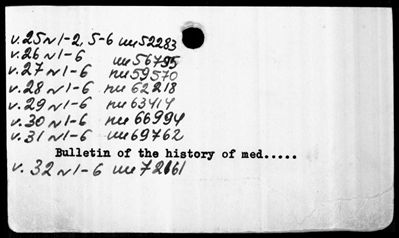 v. 25 N 1-2, 5-6 ии 52283
v. 26 N 1-6 ии 56795
v. 27 N 1-6 ии 59570
v. 28 N 1-6 ии 62218
v. 29 N 1-6 ии 63414
v. 30 N 1-6 ии 66994
v. 31 N 1-6 ии 69762
Bulletin of the history of med.....
v. 32 N 1-6 ии 72161